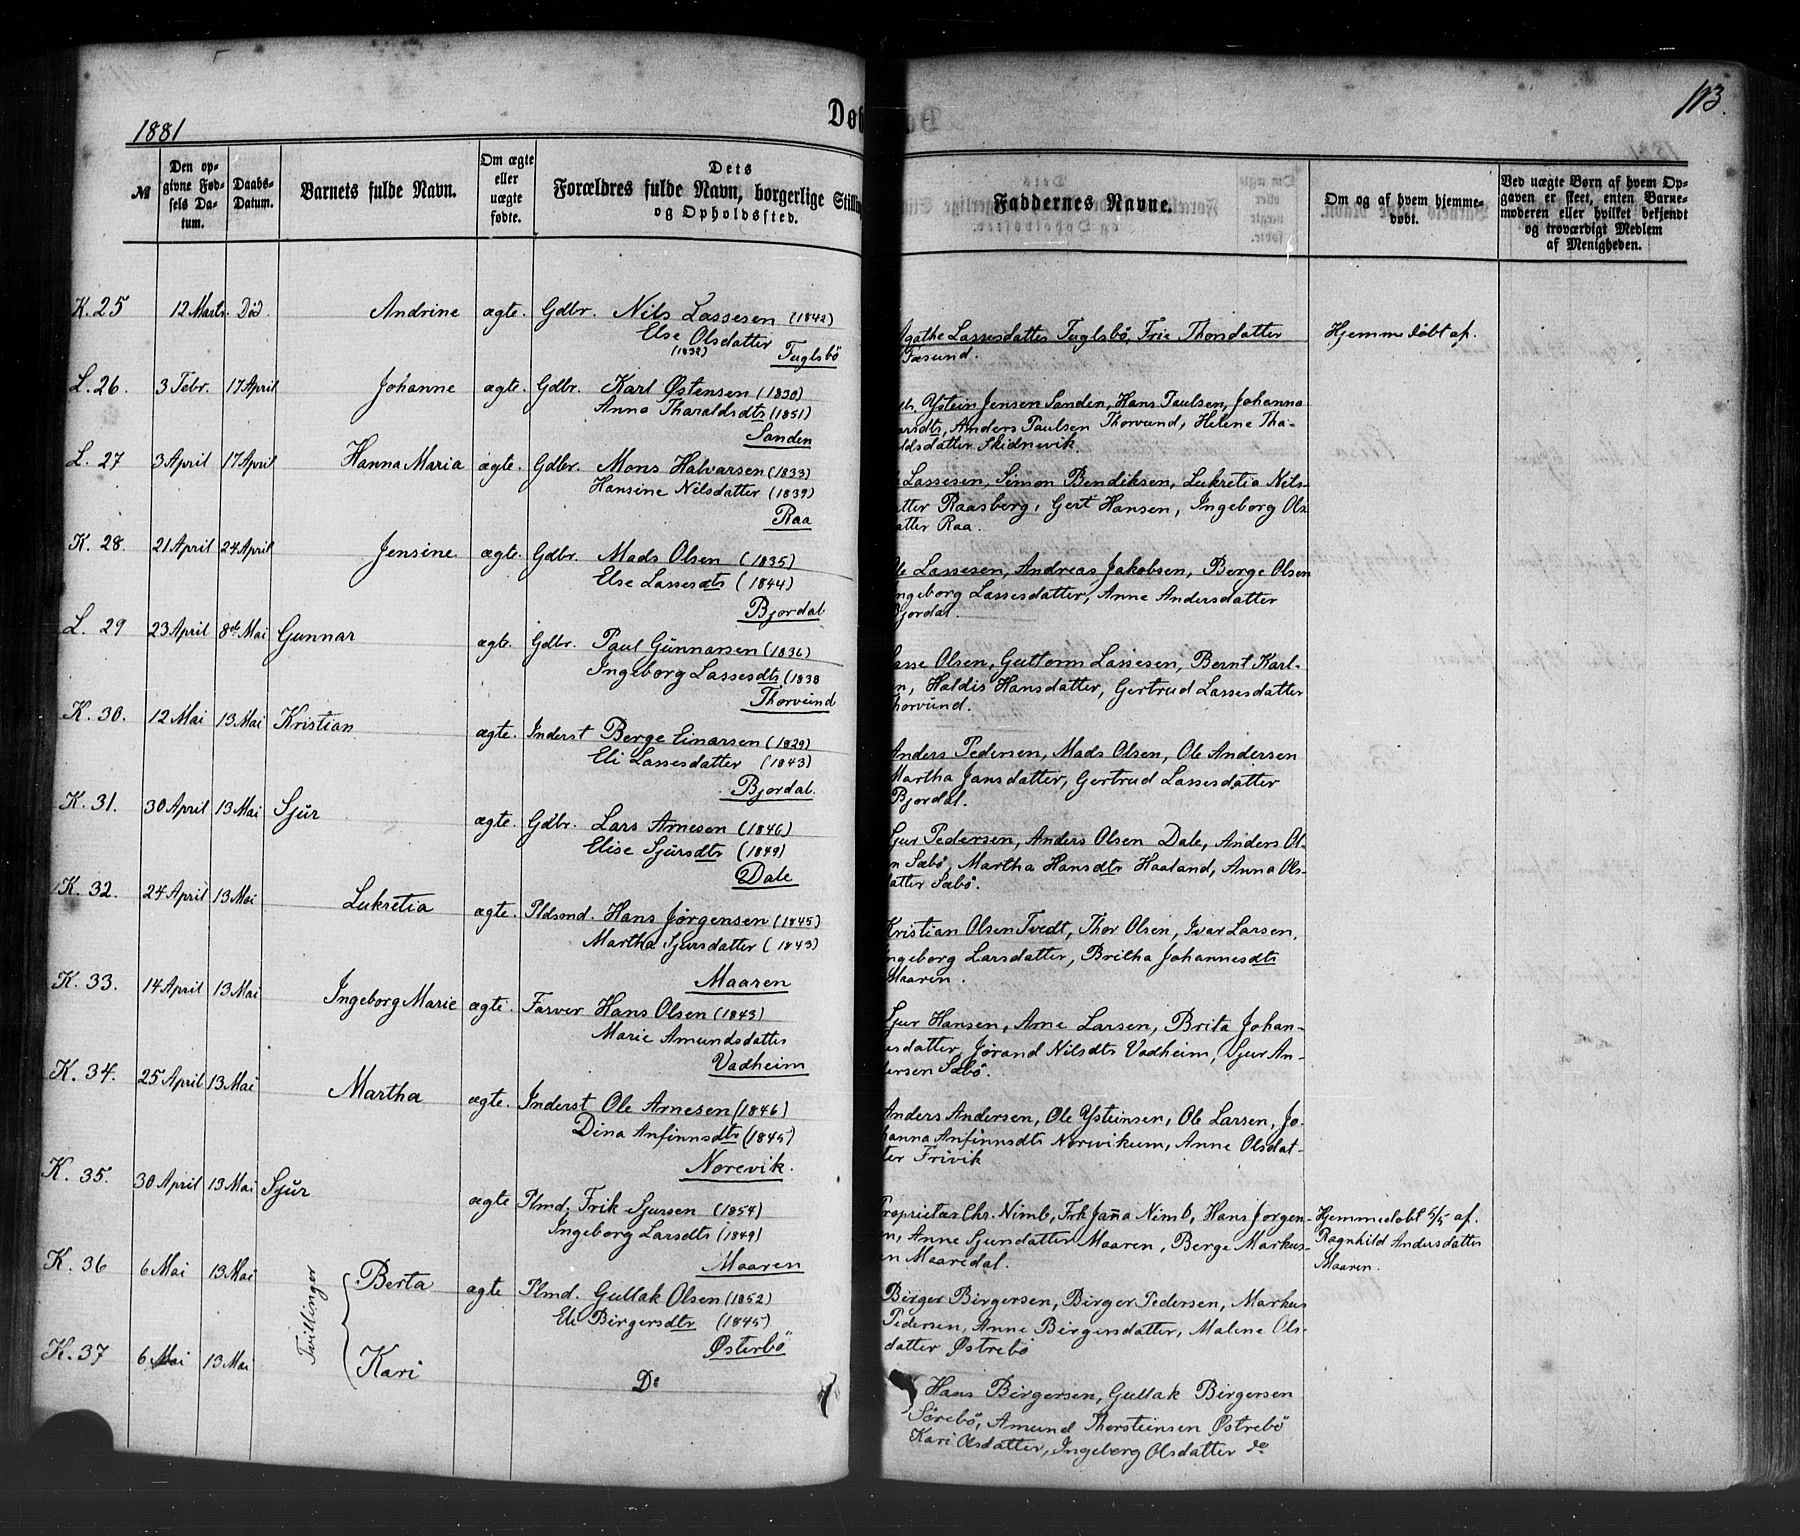 113.
1881
Døb
№
Den opgivne Fødsels Datum.
Daabs-Datum.
Barnets fulde Navn.
Om ægte eller uægte fødte.
Dets Forældres fulde Navn, borgerlige Stillin og Opholdssted.
Faddernes Navne.
Om og af hvem hjemmedøbt.
Ved uægte Børn af hvem Opgaven er skeet, enten Barnemoderen eller hvilket bekjendt og troværdigt Medlem af Menigheden.
K. 25 12 Marts. Død. Andrine ægte. Gdbr. Nils Lassesen (1842)
Else Olsdatter
(1838) Fuglsbö
Agathe Lassesdatter Fuglsbö, Thorsdatter
Hjemmedöbt af.
L. 26. 3 Febr. 17 April Johanne ægte. Gdbr. Karl Østensen (1830)
Anna Tharaldsdtr (1851)
Sanden
Ystein Jensen Sanden, Hans Paulsen, Johanna
Anders Paulsen Thorvund, Helene Tha-
ldsdatter Skidnevik.
L. 27 3 April 17 April Hanna Maria ægte. Gdbr. Mons Halvarsen (1833)
Hansine Nilsdatter (1839)
Raa
Lassesen, Simon Bendiksen, Lukretia Nils-
atter Raasberg, Gert Hansen, Ingeborg Ols
atter Raa.
K. 28. 21 April 24 April Jensine ægte. Gdbr. Mads Olsen (1835)
Else Lassesdtr (1844)
Bjordal
Ole Lassesen, Andreas Jakobsen, Berge Olsen
ngeborg Lassesdatter, Anne Andersdatter
Bjordal.
L. 29 23 April 8de Mai Gunnar ægte. Gdbr. Paul Gunnarsen (1836)
Ingeborg Lassesdtr (1838
Thorvund
asse Olsen, Guttorm Lassesen, Bernt Karl-
n, Haldis Hansdatter, Gertrud Lassesdatter
horvund.
K. 30. 12 Mai 13 Mai Kristian ægte. Inderst Berge Einarsen (1829)
Eli Lassesdatter (1843)
Bjordal.
Anders Pedersen, Mads Olsen, Ole Andersen
Martha Jansdatter, Gertrud Lassesdatter
Bjordal.
K. 31. 30 April 13 Mai Sjur ægte. Gdbr. Lars Arnesen (1846)
Elise Sjursdtr (1849)
Dale
Sjur Pedersen, Anders Olsen Dale, Anders Ol-
n Sæbö, Martha Hansdtr Haaland, Anna Ols-
datter Sæbö.
K. 32. 24 April 13 Mai Lukretia ægte. Pldsmd. Hans Jørgensen (1845)
Martha Sjursdatter (1843)
Maaren
Kristian Olsen Tvedt, Thor Olsen, Ivar Larsen,
ngeborg Larsdatter, Britha Johannesdtr
Maaren.
K. 33. 14 April 13 Mai Ingeborg Marie ægte. Farver Hans Olsen (1843)
Marie Amundsdatter
Vadheim
Sjur Hansen, Arne Larsen, Brita Johan-
esdatter, Jørand Nilsdtr Vadheim, Sjur An-
dersen Sæbö.
K. 34. 25 April 13 Mai Martha ægte. Inderst Ole Arnesen (1846)
Dina Anfinnsdtr (1845)
Norevik.
Anders Andersen, Ole Ysteinsen, Ole Larsen, Jo-
hanna Anfinnsdtr Norevikum, Anne Olsdat-
ter Frivik
K. 35. 30 April 13 Mai Sjur ægte Plmd. Erik Sjursen (1854)
Ingeborg Larsdtr (1849)
Maaren
Proprietær Chr. Nimb, Frk Janna Nimb, Hans Jorgen-
en, Anne Sjursdatter Maaren, Berge Markus-
en Maaredal.
Hjemmedøbt 5/5 af.
Ragnhild Andersdatter
Maaren.
K. 36 6 Mai 13 Mai Tvillinger Berta ægte Plmd. Gullak Olsen (1852)
Eli Birgersdtr (1845)
Østerbö
Birger Birgersen, Birger Pedersen, Markus
Pedersen, Anne Birgersdatter, Malene Ols-
datter Østrebö
K. 37 6 Mai 13 Mai Kari Do
Hans Birgersen, Gullak Birgersen
Sörebö, Amund Thorsteinsen Østrebö
Kari Olsdatter, Ingeborg Olsdatter do